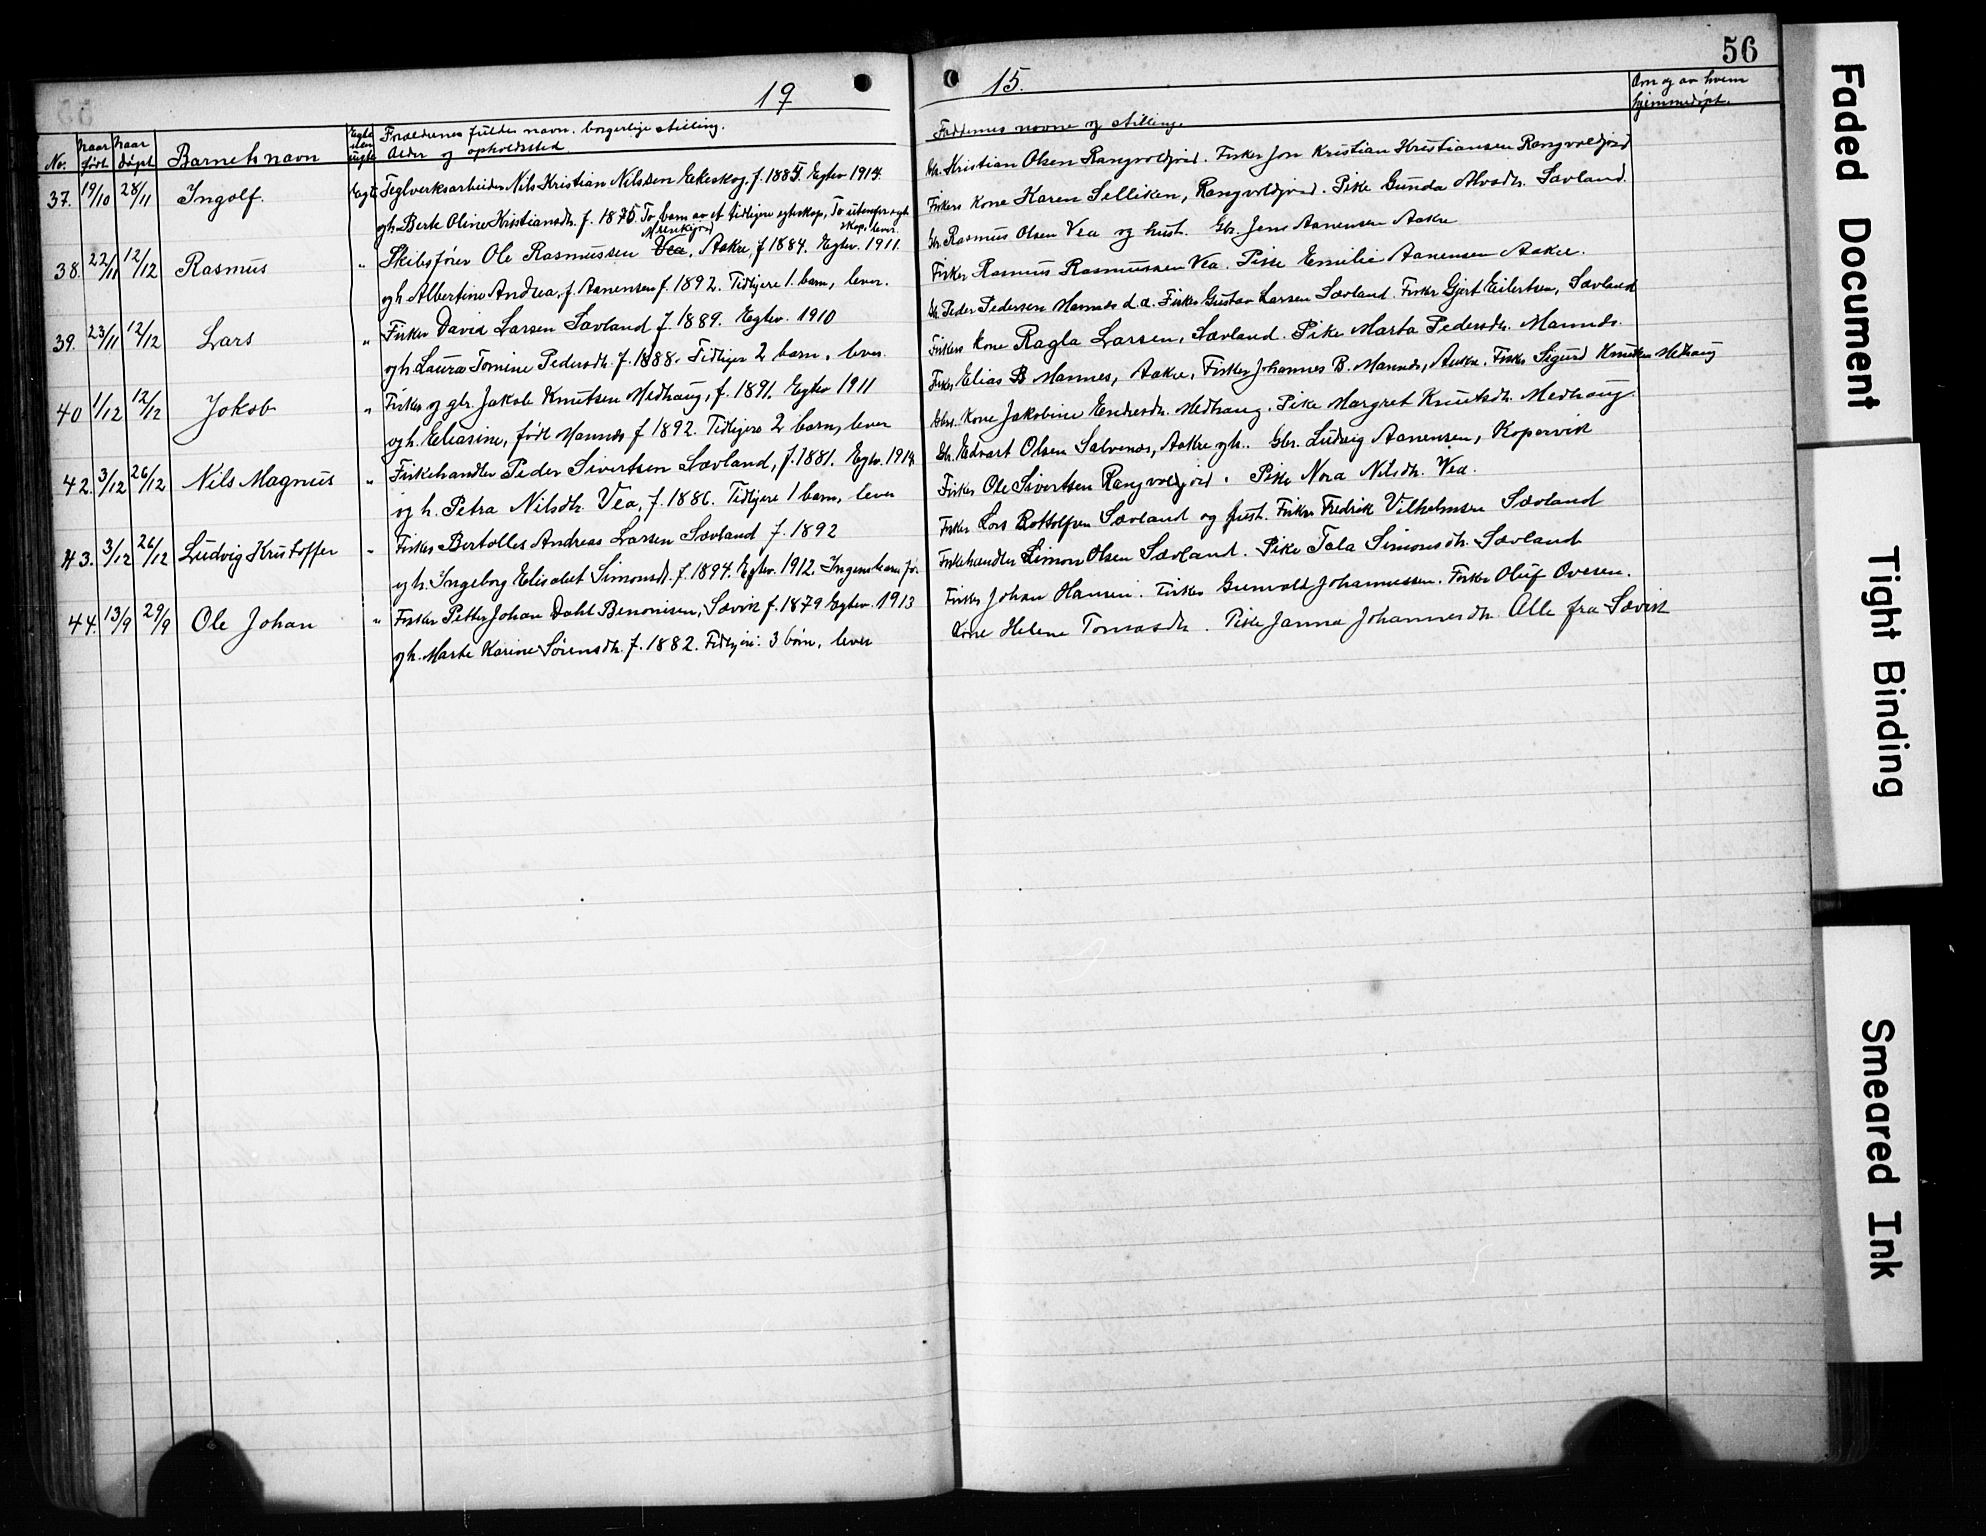 56
19 15.
No. Naar født Naar døpt Barnets navn Egte eller uegte Forældrenes fulde navn, borgerlige stilling. Alder og opholdssted Faddernes navne og stilling. Om og av hvem hjemmedøpt.
37. 19/10 28/11 Ingolf. Egte Teglverksarbeider Nils Kristian Nilssen Ekeskog, f. 1885. Egtev 1914. Gbr. Kristian Olsen Rangvoldjord. Fisker Jon Kristian Kristiansen Rangvoldjord
ogh. Berte Oline Kristiansdtr. f. 1875. To barn av et tidligere egteskap, To utenfor egteskap, lever. Fiskers kone Karen Selliken, Rangvoldjord. Pike Gunda Alvsdtr. Sævland.
38. 22/11 12/12 Rasmus " Skibsfører Ole Rasmussen Vea, Aakre, f. 1884. Egtev. 1911. Gbr. Rasmus Olsen Vea og hust. Gbr. Jens Aanensen Aakre
ogh Albertine Andrea, f. Aanensen f. 1892. Tidligere 1. barn, lever. Fisker Rasmus Rasmussen Vea. Pike Emilie Aanensen Aakre.
39. 23/11 12/12 Lars " Fisker David Larsen Sævland f. 1889. Egtev. 1910 Gbr. Peder Pedersen Mannes d.æ. Fisker Gustav Larsen Sævland. Fisker Gjert Eilertsen, Sævland
ogh. Laura Tomine Pedersdtr. f. 1888. Tidligere 2 barn, lever. Fiskers kone Ragla Larsen, Sævland. Pike Marta Pedersdtr. Mannes.
40 1/12 12/12 Jakob " Fisker og gbr. Jakob Knutsen Medhaug, f. 1891. Egtev 1911 Fisker Elias B Mannes, Aakre, Fisker Johannes B. Mannes, Aakre. Fisker Sigurd Knutsen Medhaug
ogh. Eliasine, født Mannes f 1892. Tidligere 2 barn, lever Gbrs. Kone Jakobine Endresdtr. Medhaug. Pike Margret Knutsdtr. Medhaug.
42. 3/12 26/12 Nils Magnus " Fiskehandler Peder Sivertsen Sævland, f. 1881. Egtev. 1914 Gbr. Edvart Olsen Salvenes, Aakre ogh. Gbr. Ludvig Aanensen, Kopervik
ogh. Petra Nilsdtr. Vea, f. 1886. Tidligere 1 barn, lever Fisker Ole Sivertsen Rangvoldjord. Pike Nora Nilsdtr. Vea.
43. 3/12 26/12 Ludvig Kristoffer " Fisker Bertolles Andreas Larsen Sævland f. 1892 Fisker Lars Rottolfsen Sævland og hust. Fisker Fredrik Vilhelmsen Sævland
ogh. Ingeborg Elisabet Simonsdtr. f. 1894. Egtev. 1912. Ingen barn før Fiskehandler Simon Olsen Sævland. Pike Tala Simonsdtr. Sævland
44. 13/9 29/9 Ole Johan " Fisker Petter Johan Dahl Benonisen, Sævik f. 1879 Egtev. 1913 Fisker Johan Hansen. Fisker Gunvald Johannessen. Fisker Oluf Ovesen.
ogh. Marte Karine Sørensdtr. f. 1882. Tidligere: 3 børn, lever Kone Helene Tomasdtr. Pike Janna Johannesdtr. Alle fra Sævik
Faded Document
Tight Binding
Smeared Ink